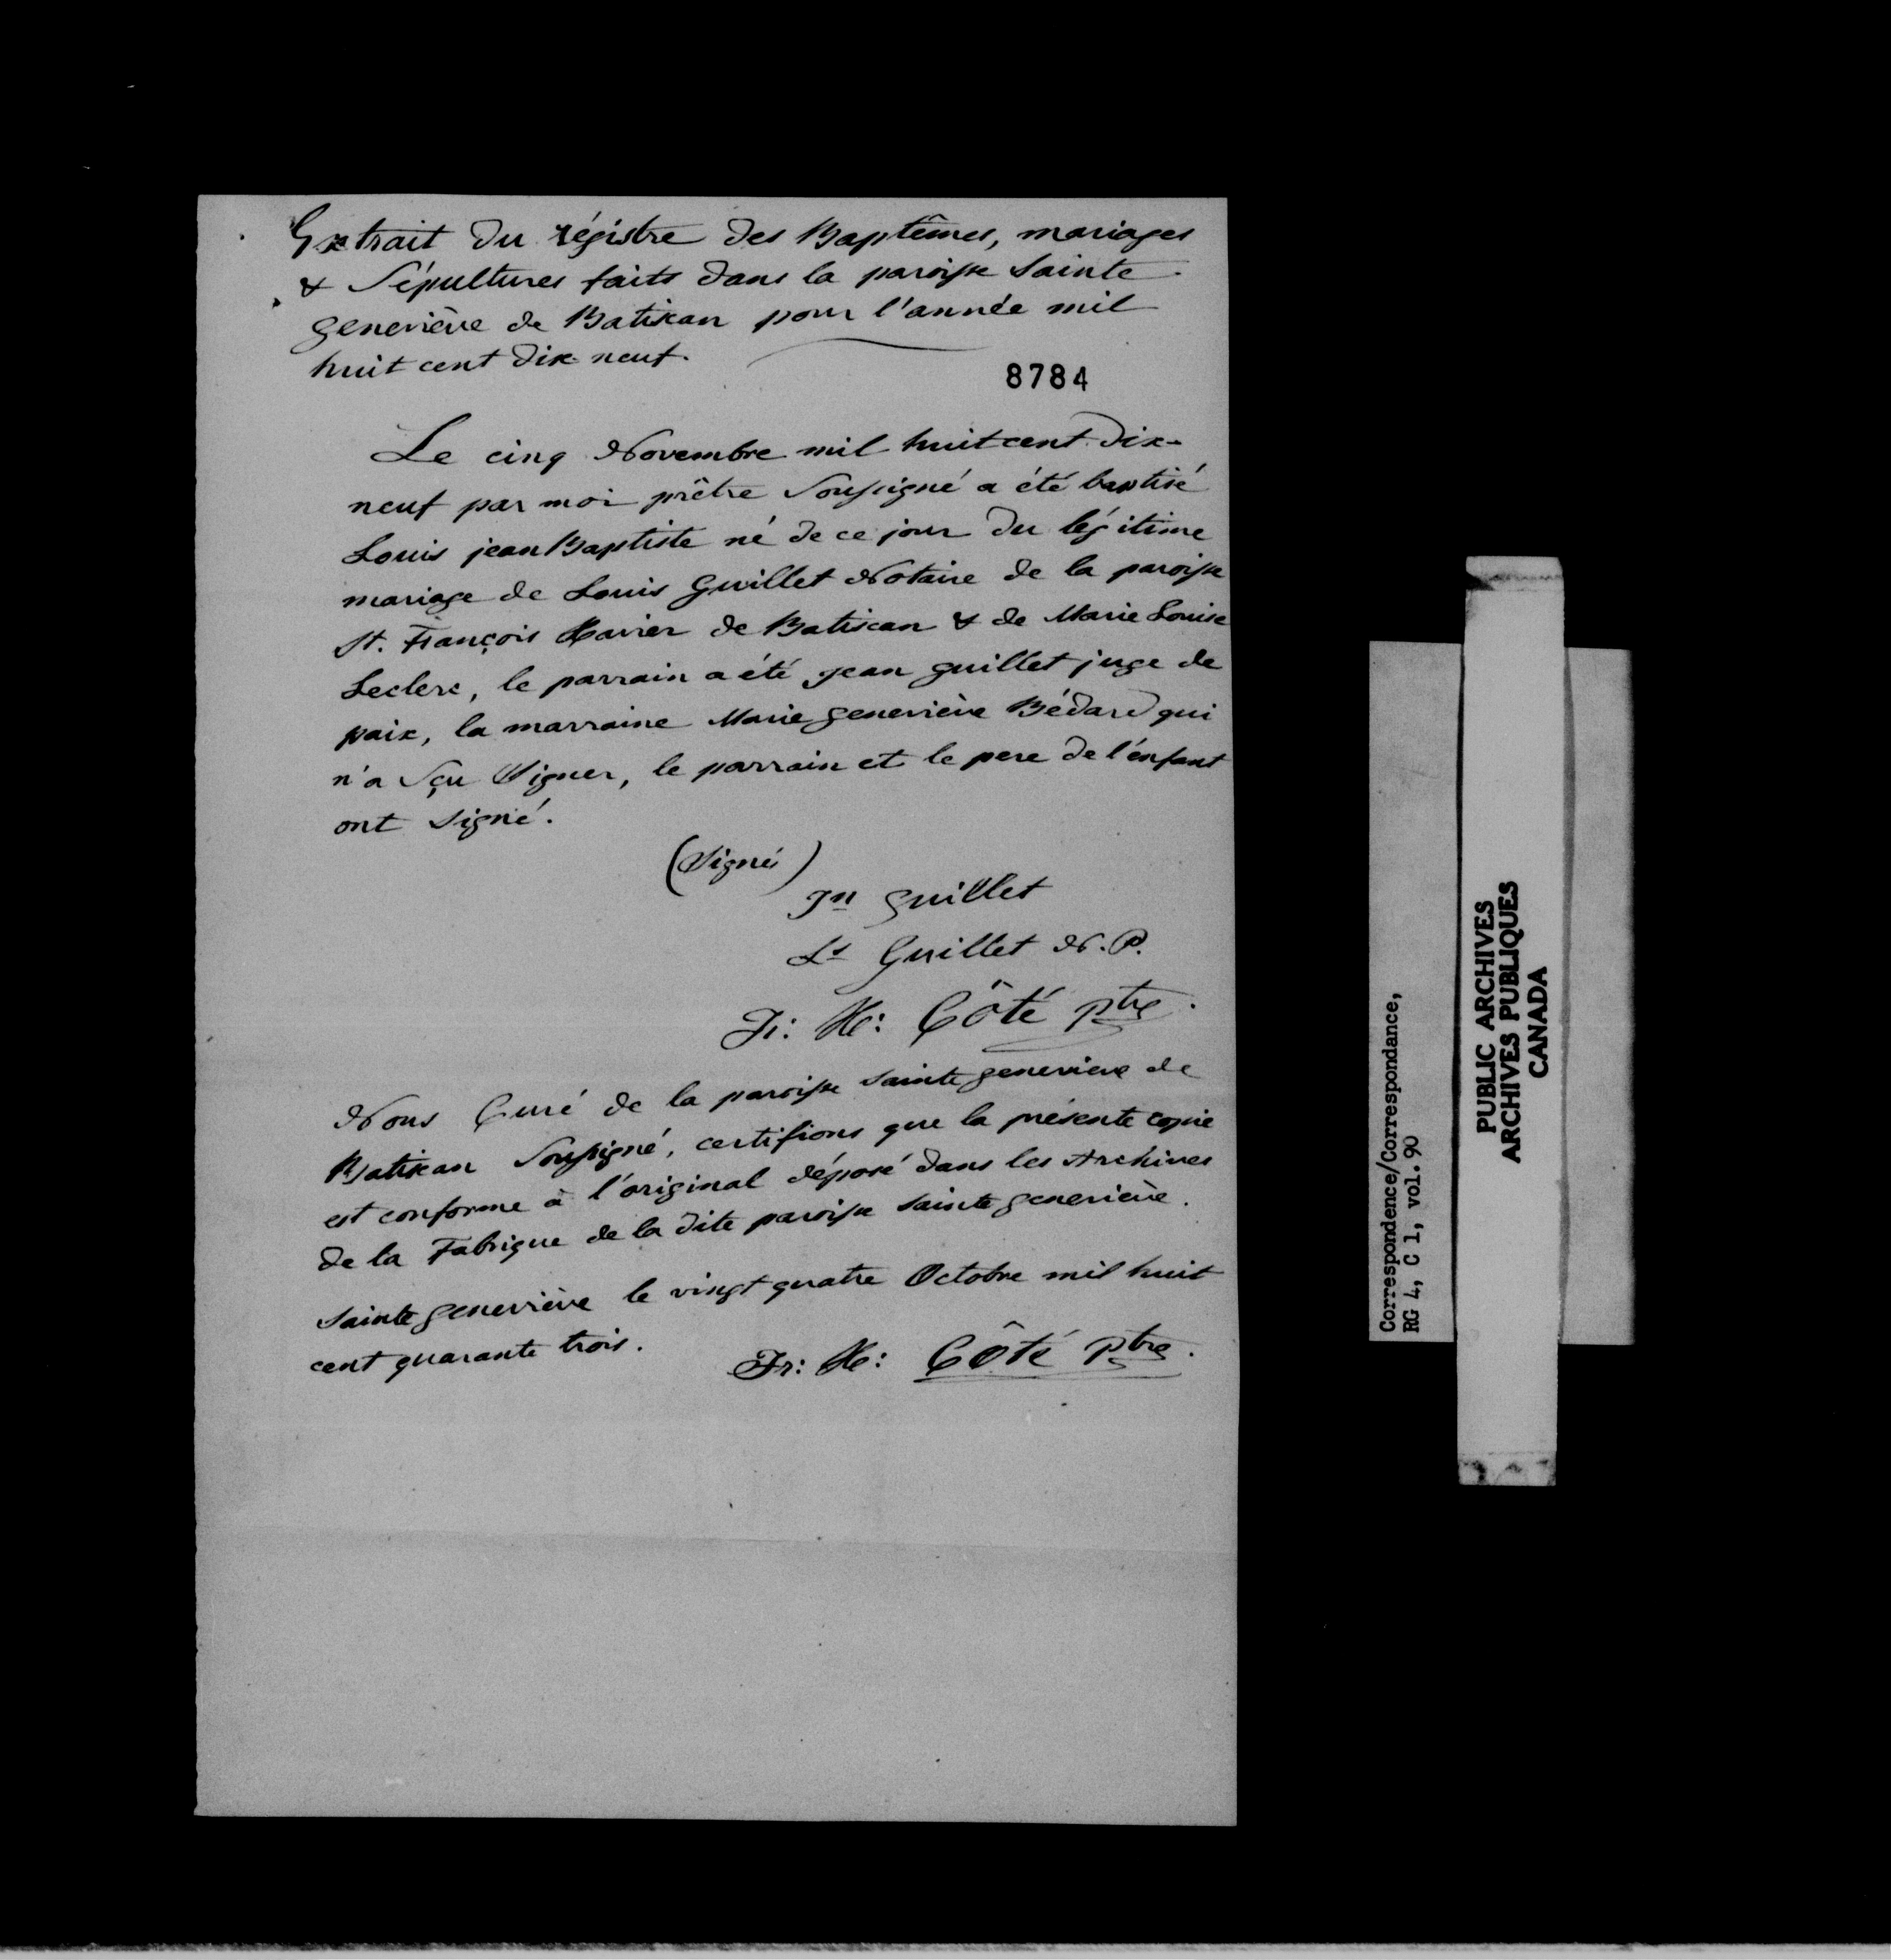 Extrait du régistre des Baptêmes, mariages
& Sépultures faits dans la paroisse Sainte
geneviève de Batiscan pour l'année mil
huit cent dix-neuf.
8784
Le cinq Novembre mil huit cent dix-
neuf par moi prêtre Soussigné a été baptisé
Louis jean Baptiste né de ce jour du légitime
mariage de Louis Guillet Notaire de la paroisse
St. François Xavier de Batiscan & de Marie Louise
Leclerc, le parrain a été jean guillet juge de
paix, la marraine Marie geneviève Bédard qui
n'a Sçu Signer, le parrain et le pere de l'enfant
ont signé.
(Signés)
Jn Guillet
Ls Guillet N.P.
Fr: X: Côté Ptre.
Nous Curé de la paroisse Sainte geneviève de
Batiscan Soussigné, certifions que la présente copie
est conforme à l'original déposé dans les Archives
de la Fabrique de la dite paroisse Sainte geneviève.
Sainte geneviève le vingt quatre Octobre mil huit
cent quarante trois.
Fr: X: Côté Ptre.
Correspondence/Correspondance,
RG 4, C 1, vol. 90
PUBLIC ARCHIVES
ARCHIVES PUBLIQUES
CANADA